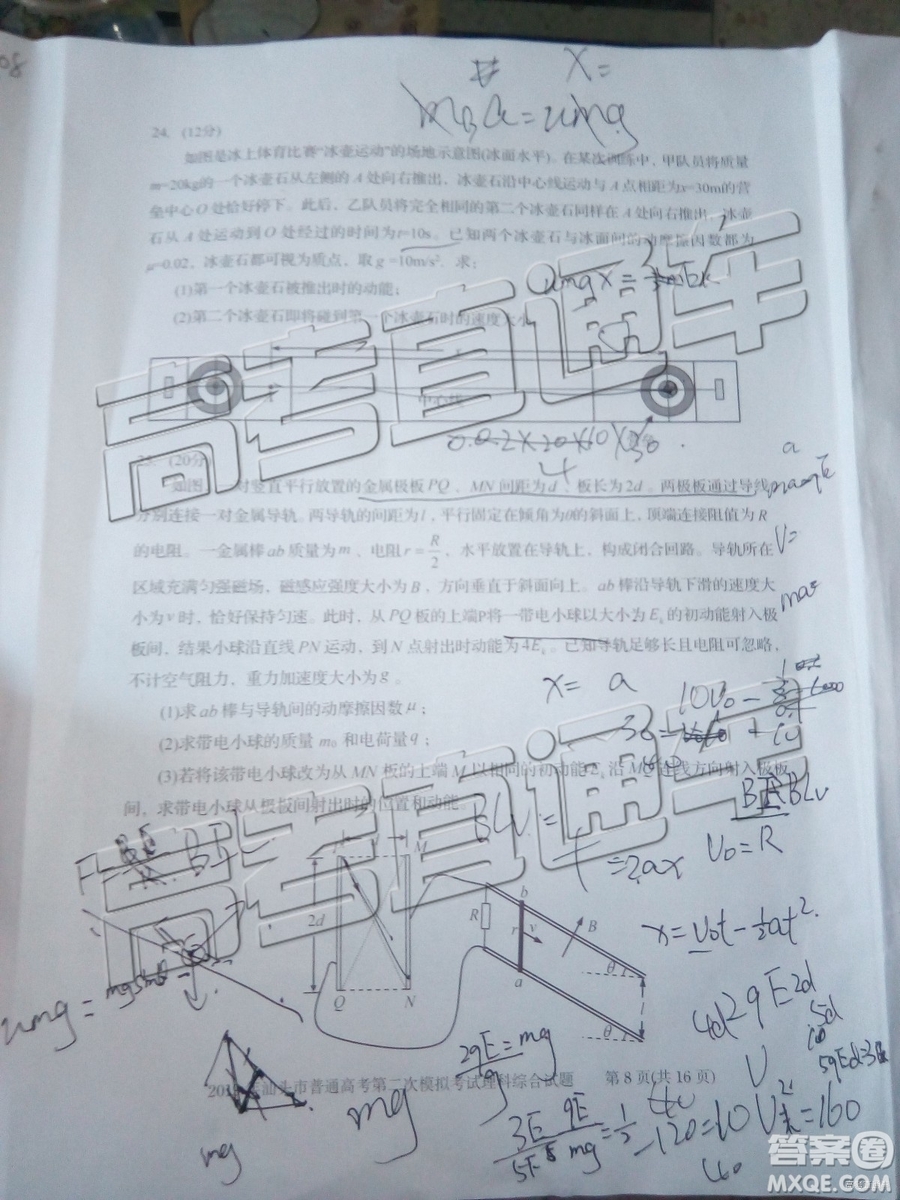 08
X=
mBa=umg
24. (12分)
如图是冰上体育比赛“冰壶运动”的场地示意图(冰面水平)。在某次训练中，甲队员将质量
m=20kg的一个冰壶石从左侧的 A 处向右推出，冰壶石沿中心线运动与 A 点相距为x=30m的营
垒中心 O 处恰好停下。此后，乙队员将完全相同的第二个冰壶石同样在 A 处向右推出，冰壶
石从 A 处运动到 O 处经过的时间为t=10s。已知两个冰壶石与冰面间的动摩擦因数都为
μ=0.02，冰壶石都可视为质点，取 g =10m/s²．求：
umgx=
(1)第一个冰壶石被推出时的动能；
(2)第二个冰壶石即将碰到第一个冰壶石时的速度大小
高考直通车
中心线
0.02×20×10×30
4
25. (20分)
如图，一对竖直平行放置的金属极板 PQ 、MN 间距为 d ，板长为 2d 。两极板通过导线
分别连接一对金属导轨。两导轨的间距为 l ，平行固定在倾角为θ的斜面上，顶端连接阻值为 R
的电阻。一金属棒 ab 质量为 m 、电阻 r = R/2 ，水平放置在导轨上，构成闭合回路。导轨所在
V=
区域充满匀强磁场，磁感应强度大小为 B ，方向垂直于斜面向上。ab 棒沿导轨下滑的速度大
小为 v 时，恰好保持匀速。此时，从 PQ 板的上端P将一带电小球以大小为 Ek 的初动能射入极
板间，结果小球沿直线 PN 运动，到 N 点射出时动能为 4Ek 。已知导轨足够长且电阻可忽略，
不计空气阻力，重力加速度大小为 g 。
x= a
10v₀-
(1)求 ab 棒与导轨间的动摩擦因数 μ ；
(2)求带电小球的质量 m₀ 和电荷量 q ；
(3)若将该带电小球改为从 MN 板的上端 M 以相同的初动能 Ek 沿 MQ 连线方向射入极板
间，求带电小球从极板间射出时的位置和动能。
高考直通车
BLv =
BLv
=2ax
V₀=R
P
M
2d
Q
N
R
b
r
v
a
B
θ
θ
x=v₀t-½at²
umg=mgsinθ
4d
2qE2d
5d
2qE=mg
V
汕头市普通高考第二次模拟考试理科综合试题 第 8 页(共 16 页)
mg
mg
-120=10
=160
答案圈
MXQE.COM